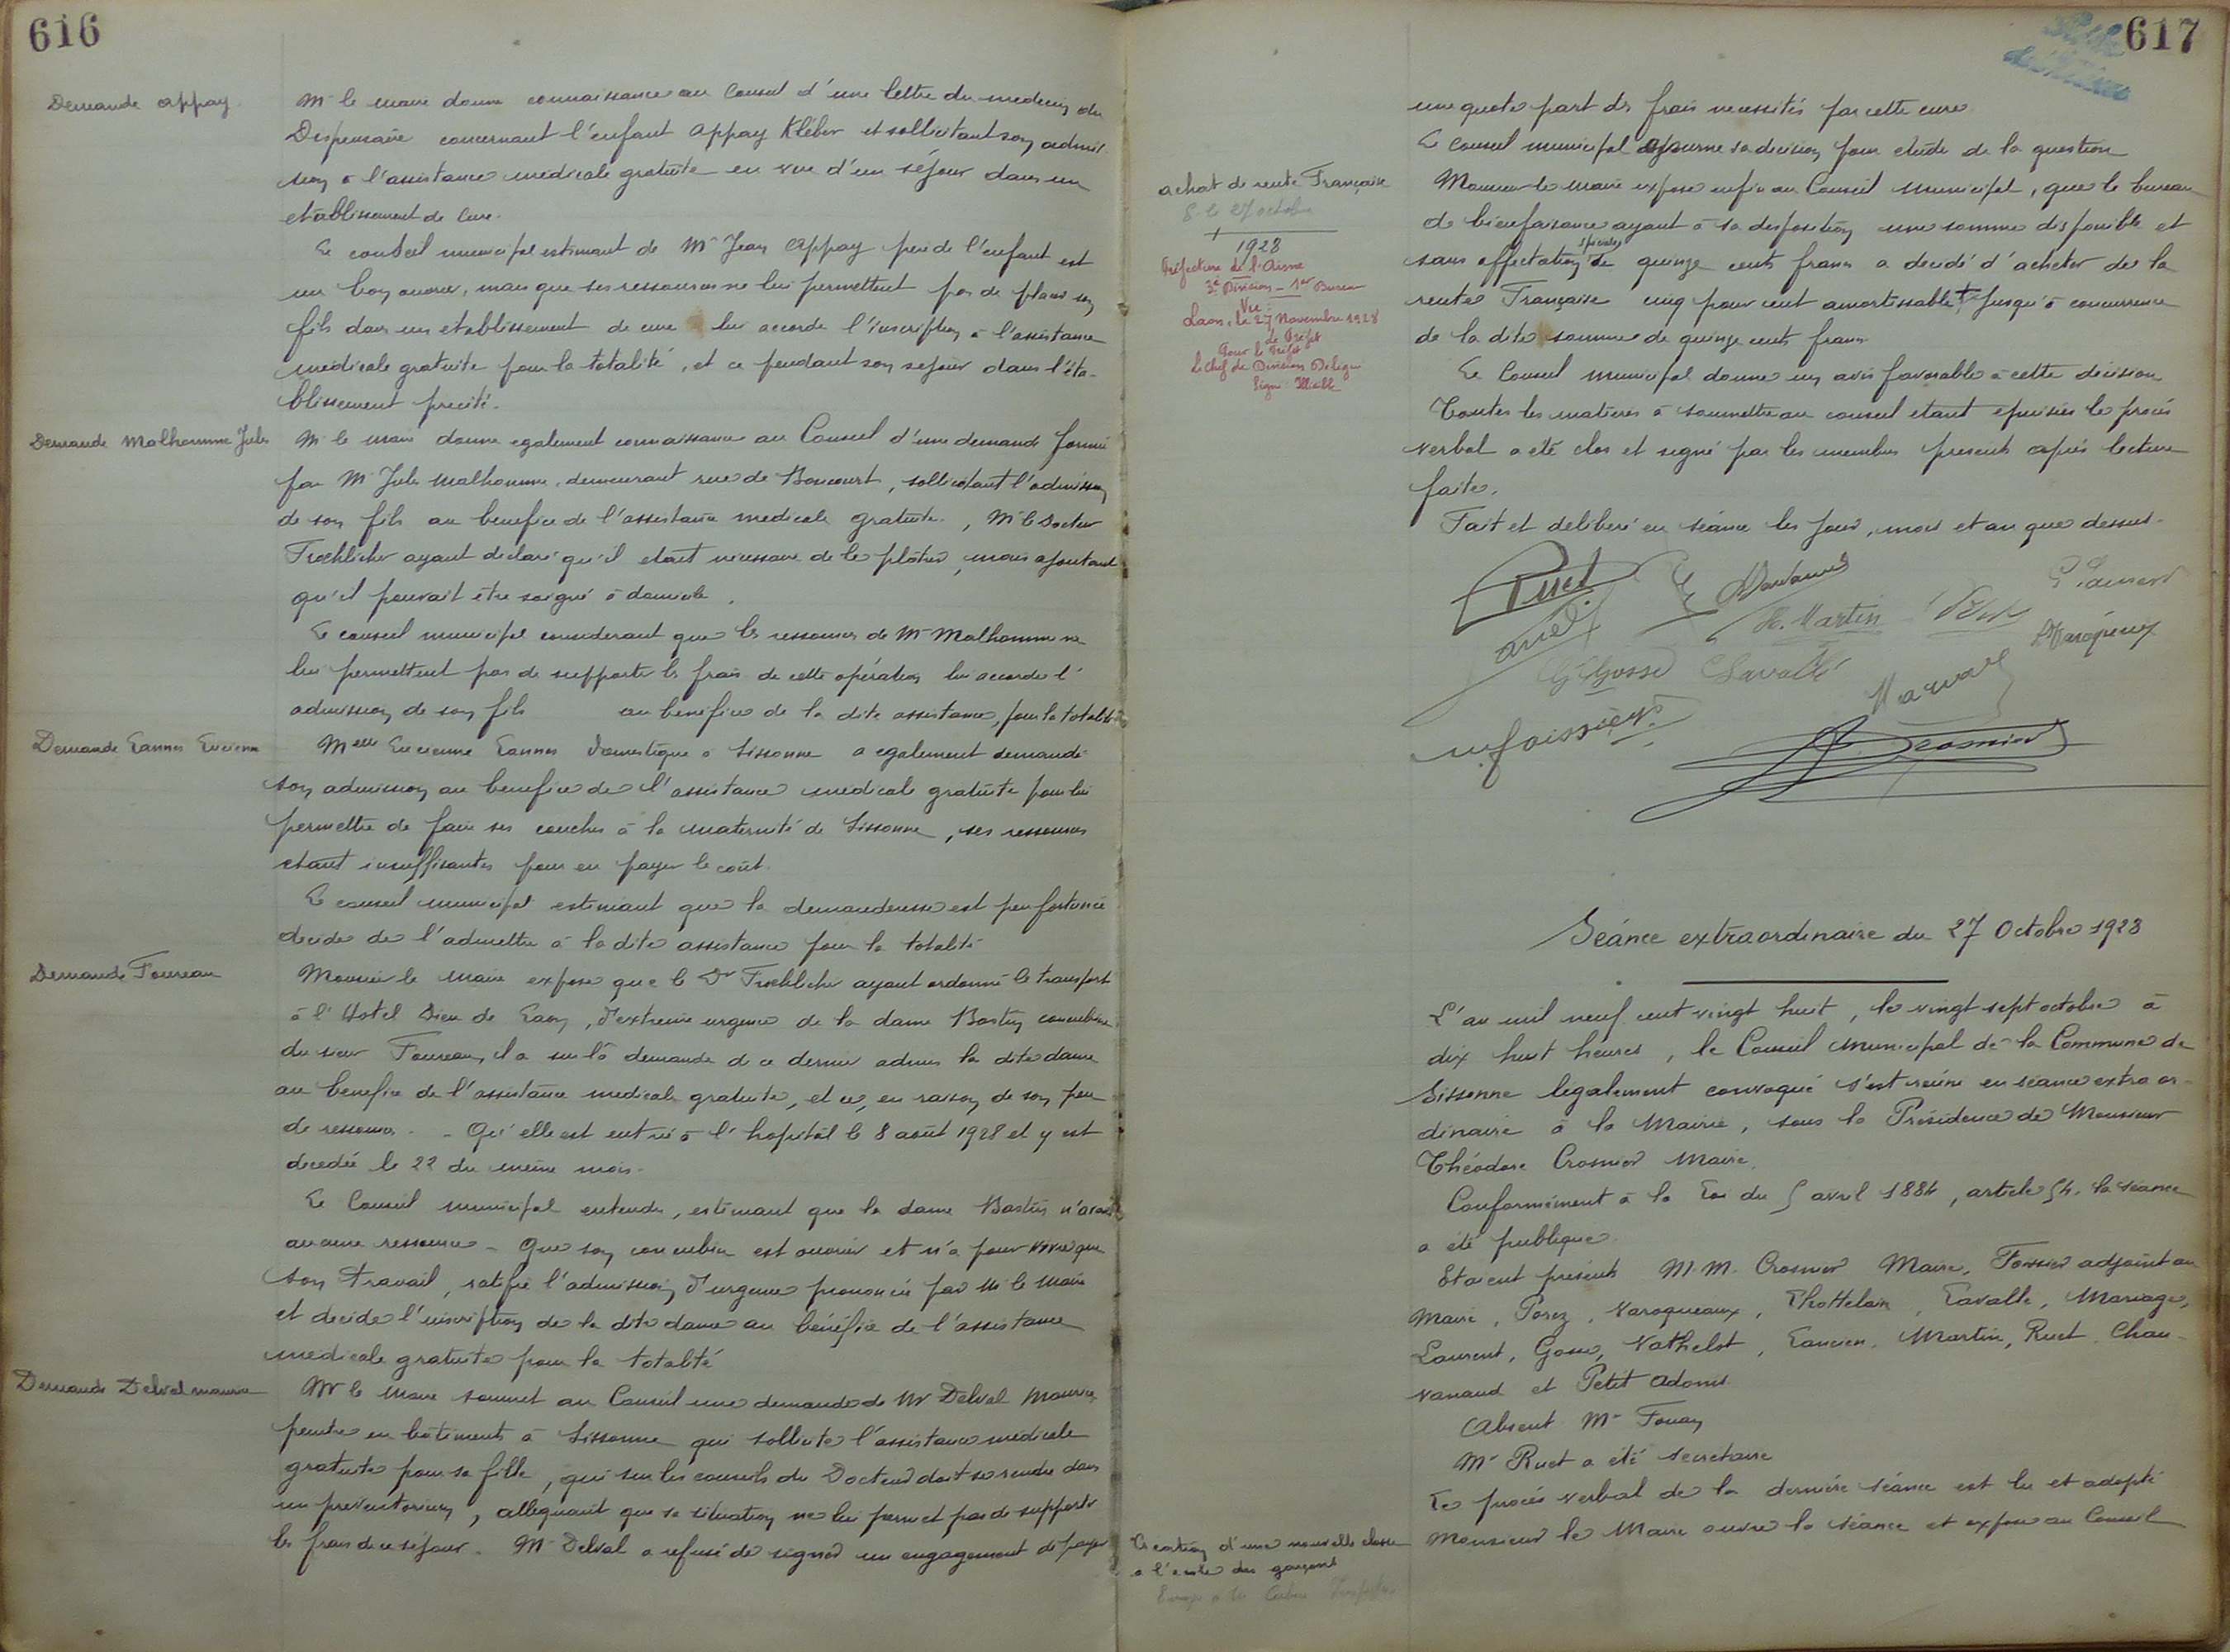 616
Demande Appay
Mr le maire donne connaissance au Conseil d'une lettre du medecin du
Dispensaire concernant l'enfant Appay Kléber et sollicitant son admis-
sion à l'assistance médicale gratuite en vue d'un séjour dans un
etablissement de cure.
Le conseil municipal estimant de Mr Jean Appay père de l'enfant est
un bon ouvrier, mais que ses ressources ne lui permettent pas de placer son
fils dans un etablissement de cure lui accorde l'inscription à l'assistance
médicale gratuite pour la totalité, et ce pendant son sejour dans l'éta-
blissement precité.
Demande Malhomme Jules
Mr le maire donne egalement connaissance au Conseil d'une demande formée
par Mr Jules Malhomme, demeurant rue de Boncourt, sollicitant l'admission
de son fils au benefice de l'assistance medicale gratuite, Mr le Docteur
Froehlicher ayant declaré qu'il etait nécessaire de le plâtrer, mais ajoutant
qu'il pouvait être soigné à domicile.
Le conseil municipal considerant que les ressources de Mr Malhomme ne
lui permettent pas de supporter les frais de cette opération lui accorde l'
admission de son fils au benefice de la dite assistance, pour la totalité
Demande Lannes Lucienne
Melle Lucienne Lannes domestique à Sissonne a egalement demandé
son admission au benefice de l'assistance medicale gratuite pour lui
permettre de faire ses couches à la maternité de Sissonne, ses ressources
etant insuffisantes pour en payer le coût.
Le conseil municipal estimant que la demanderesse est peu fortunée
decide de l'admettre à la dite assistance pour la totalité
Demande Foureau
Monsieur le Maire expose que le Dr Froehlicher ayant ordonné le transport
à l'Hotel Dieu de Laon, d'extreme urgence de la dame Bastin concubine
du sieur Foureau, il a sur la demande de ce dernier admis la dite dame
au benefice de l'assistance medicale gratuite, et ce, en raison de son peu
de ressources - Qu'elle est entrée à l'hopital le 8 août 1928 et y est
decedée le 22 du même mois.
Le Conseil municipal entendu, estimant que la dame Bastin n'avait
aucune ressource - Que son concubin est ouvrier et n'a pour vivre que
son travail, ratifie l'admission d'urgence prononcée par M le Maire
et decide l'inscription de la dite dame au bénéfice de l'assistance
médicale gratuite pour la totalité
Demande Delval Maurice
Mr le Maire soumet au Conseil une demande de Mr Delval Maurice
peintre en bâtiments à Sissonne qui sollicite l'assistance medicale
gratuite pour sa fille, qui sur les conseils du Docteur doit se rendre dans
un preventorium, alleguant que sa situation ne lui permet pas de supporter
les frais de ce séjour. Mr Delval a refusé de signer un engagement de payer
617
une quote part des frais necessités par cette cure.
Le Conseil municipal ajourne sa decision pour etude de la question
achat de rente Française
27 octobre
1928
Préfecture de l'Aisne
3e Division - 1er Bureau
Vu
Laon, le 27 Novembre 1928
Le Préfet
Pour le Préfet
Le Chef de Division Délégué
Signé
Monsieur le Maire expose enfin au Conseil Municipal, que le bureau
de bienfaisance ayant à sa disposition une somme disponible et
sans affectation spéciale de quinze cents francs a decidé d'acheter de la
rente Française cinq pour cent amortissable jusqu'à concurrence
de la dite somme de quinze cents francs
Le Conseil municipal donne un avis favorable à cette décision
Toutes les matieres à soumettre au conseil etant epuisées le procès
verbal a été clos et signé par les membres presents après lecture
faite.
Fait et deliberé en séance les jour, mois et an que dessus.
Ruet
H. Martin
G. Gosse Lavallé
Séance extraordinaire du 27 Octobre 1928
L'an mil neuf cent vingt huit, le vingt sept octobre à
dix huit heures, le Conseil Municipal de la Commune de
Sissonne legalement convoqué s'est réuni en séance extraor-
dinaire à la Mairie, sous la Présidence de Monsieur
Théodore Crosnier Maire.
Conformément à la Loi du 5 avril 1884, article 54, la séance
a été publique.
Etaient présents M.M. Crosnier Maire, Foissier adjoint au
Maire, Porez, Varoqueaux, Thottelain, Lavalle, Mariage,
Laurent, Gosse, Vathelot, Lancien, Martin, Ruet, Chau-
vanaud et Petit Adonis
Absent Mr Fouan
Mr Ruet a été secretaire
Le procès verbal de la dernière séance est lu et adopté
Creation d'une nouvelle classe
à l'ecole des garçons
Monsieur le Maire ouvre la séance et expose au Conseil